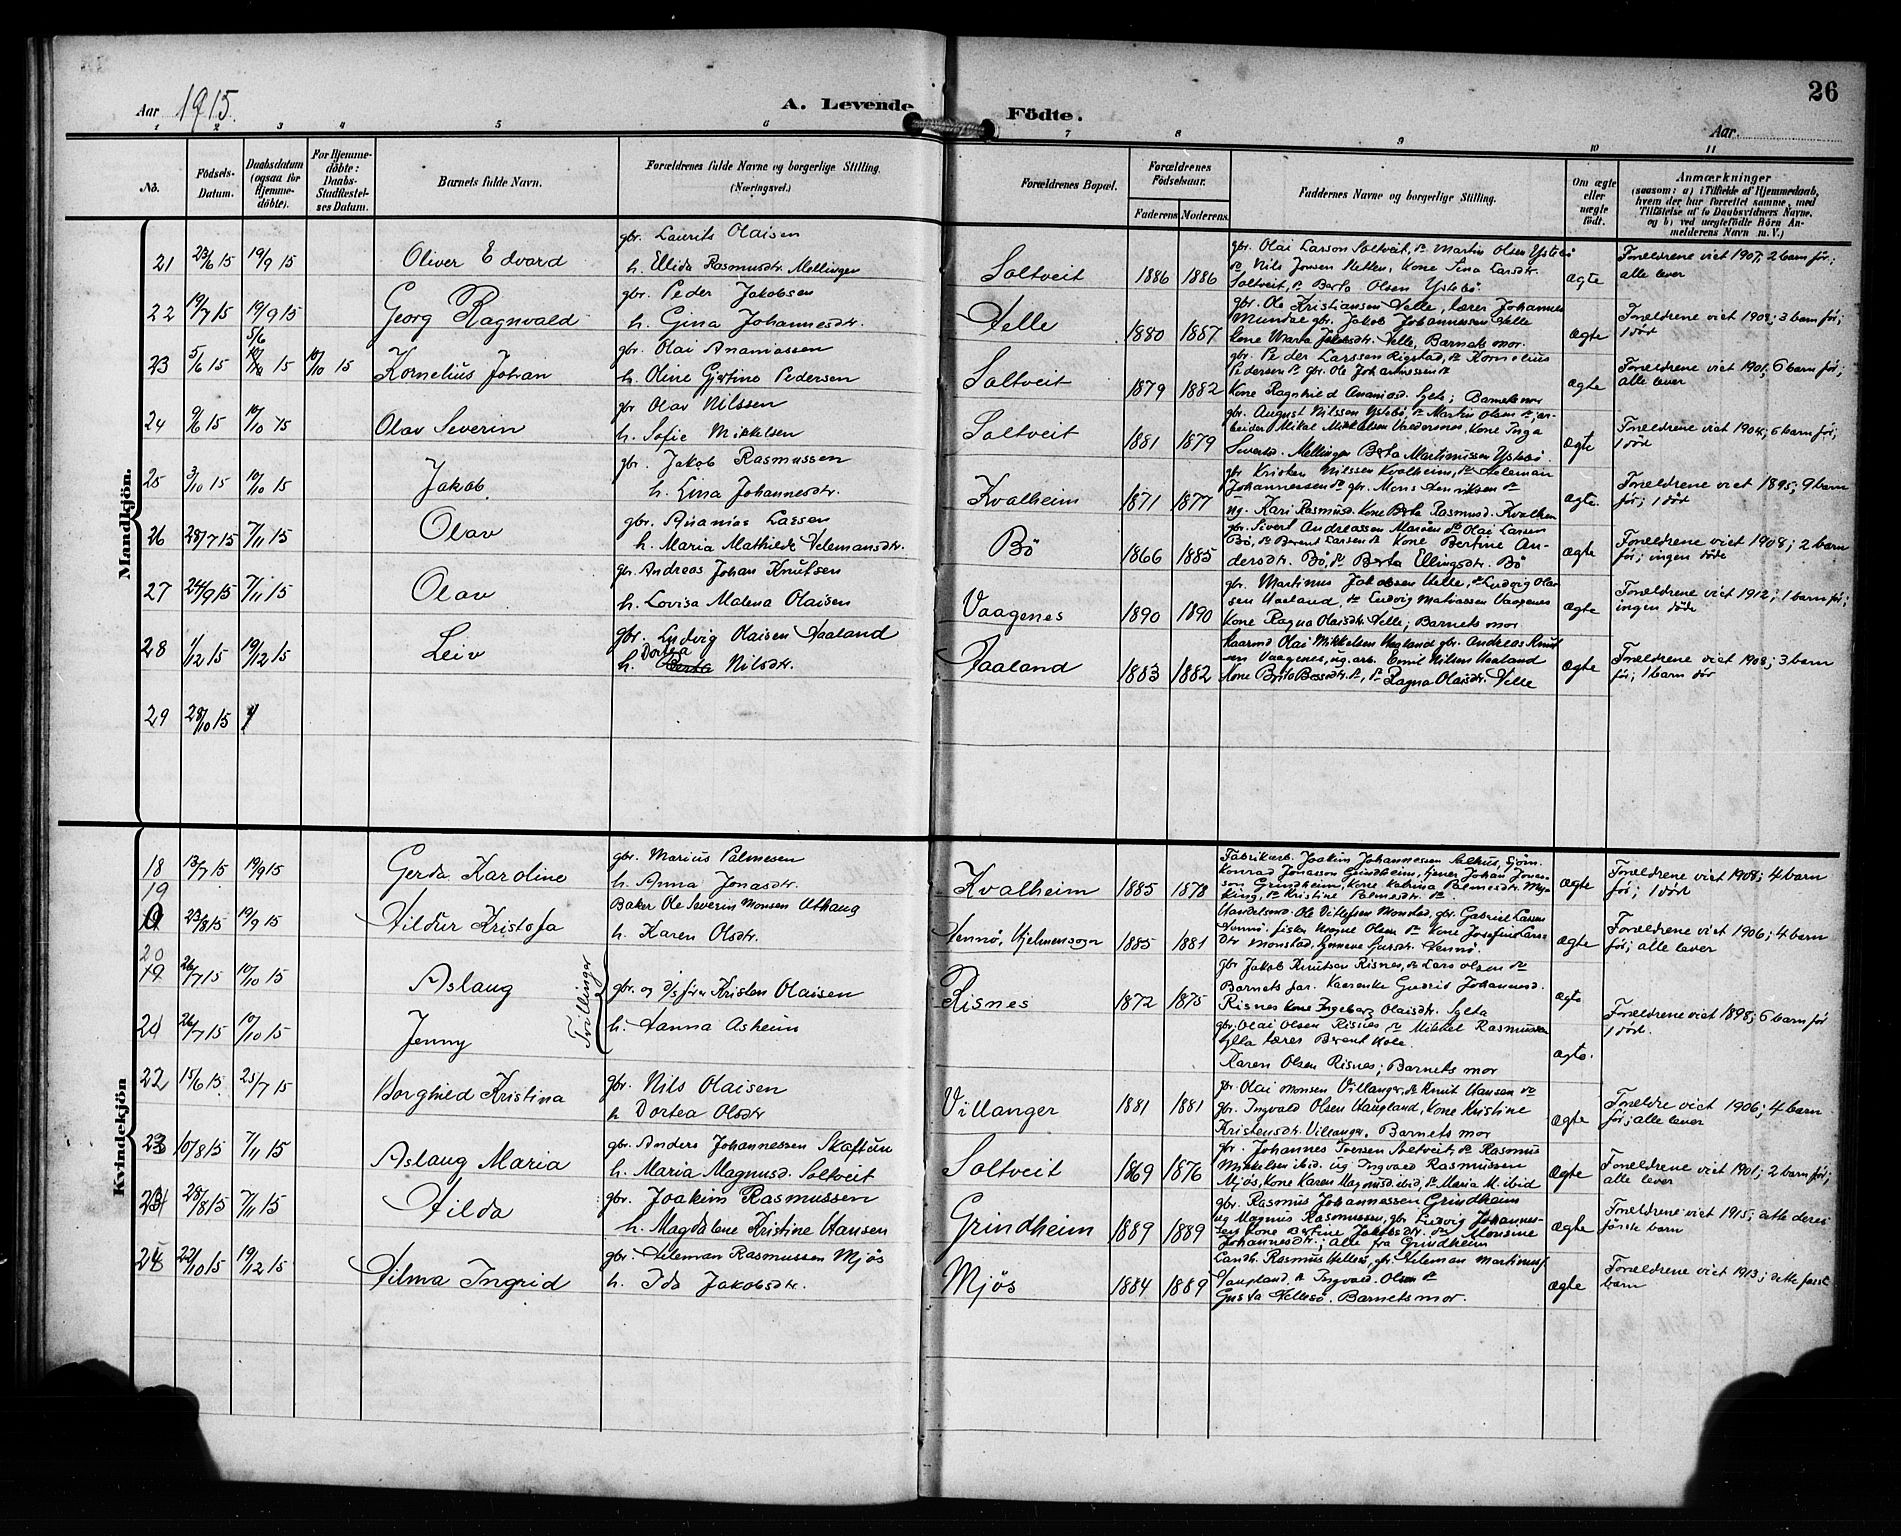 Aar 1915.
A. Levende Födte.
26
Aar.
1 2 3 4 5 6 7 8 9 10 11
No.
Födsels-Datum.
Daabsdatum (ogsaa for Hjemme-döbte).
For Hjemme-döbte: Daabs-Stadfæstel-ses Datum.
Barnets fulde Navn.
Forældrenes fulde Navne og borgerlige Stilling.
(Næringsvei.)
Forældrenes Bopæl.
Forældrenes Födselsaar.
Faderens. Moderens.
Faddernes Navne og borgerlige Stilling.
Om ægte eller uægte födt.
Anmærkninger
(saasom: a) i Tilfælde af Hjemmedaab,
hvem der har forrettet samme, med
Tilföielse af to Daabsvidners Navne.
og b) ved uægtefödte Börn An-
melderens Navn m. V.)
Mandkjön.
21 23/6 15 19/9 15 Oliver Edvard
gbr. Laurits Olaisen
h. Ellida Rasmusdtr. Mellingen
Soltveit 1886 1886
gbr. Olai Larson Soltveit, do Martin Olsen Ystebö
do Nils Jonsen Hetten, Kone Sina Larsdtr.
Soltveit, do Berta Olsen Ystebö
ægte
Forældrene viet 1907; 2 barn för;
alle lever
22 19/7 15 19/9 15 Georg Ragnvald
gbr. Peder Jakobsen
h. Gina Johannesdtr.
Helle 1880 1887
gbr. Ole Kristiansen Helle, lærer Johannes
Mundal gbr. Jakob Johannessen Helle
Kone Marta Jakobsdtr. Helle, Barnets mor.
ægte
Forældrene viet 1908; 3 barn för;
1 död
23 5/6 15 5/6 10/10 15 10/10 15 Kornelius Johan
gbr. Olai Ananiassen
h. Oline Gjertine Pedersen
Soltveit 1879 1882
gbr. Peder Larssen Rigstad, do Kornelius
Pedersen do gbr. Ole Johannessen do
Kone Ragnhild Ananiasd. Sylta; Barnets mor
ægte
Forældrene viet 1901; 6 barn för;
alle lever
24 9/6 15 10/10 15 Olav Severin
gbr Olav Nilssen
h. Sofie Mikkelsen
Soltveit 1881 1879
gbr. August Nilsson Ystebö, do Martin Olsen do; ar-
beider Mikal Mikkelsen Valdersnes, Kone Inga
Severtsd. Mellingen Berta Martinussen Ystebö
ægte
Forældrene viet 1904; 6 barn för;
1 död
25 3/10 15 10/10 15 Jakob
gbr. Jakob Rasmussen
h. Lina Johannesdtr.
Kvalheim 1871 1877
gbr Kristen Nilssen Kvalheim, do Heleman
Johannessen do gbr. Mons Henriksen do
ug. Kari Rasmusd. Kone Berta Rasmusd. Kvalhei
ægte.
Forældrene viet 1895; 9 barn
för; 1 död
26 28/7 15 7/11 15 Olav
gbr. Ananias Lassen
h. Maria Mathilde Helemansdtr.
Bö 1866 1885
gbr. Sivert Andreassen Maröen do Olai Larsen
Bö, do Berent Larsen do Kone Bertine An-
dersdtr. Bö, do Berta Ellingsdtr. Bö
ægte
Forældrene viet 1908; 2 barn
för; ingen döde
27 24/9 15 7/11 15 Olav
gbr. Andreas Johan Knutsen
h. Lovisa Malena Olaisen
Vaagenes 1890 1890
gbr. Martinus Jakobsen Helle, do Ludvig Olai
sen Haaland, do Ludvig Matiassen Vaagenes
Kone Ragna Olaisdtr. Helle; Barnets mor
ægte
Forældrene viet 1912; 1 barn för;
ingen döde
28 1/12 15 19/12 15 Leiv
gbr. Ludvig Olaisen Haaland
h. Dortea Nilsdtr.
Haaland 1883 1882
Olai Mikkelsen Haugland gbr. Andreas Knut
sen Vaagenes, ug. arb. Emil Nilsen Haaland
Kone Brita Bessdtr. do, do Ragna Olaisdtr. Helle
ægte
Forældrene viet 1908; 3 barn
för; 1 barn dör
29 28/10 15
Kvindekjön
18 13/7 15 19/9 15 Gerda Karoline
gbr. Marius Palmesen
h. Anna Jonasdtr.
Kvalheim 1885 1878
Fabrikarb. Joakim Johannessen Salhus, Sjöm.
Konrad Jonasson Grindheim, tjener Johan Jonas-
son Grindheim, Kone Katrina Palmesdtr. My-
king, do Kristine Palmesdtr. do
ægte
Forældrene viet 1908; 4 barn
för; 1 död
19 23/8 15 19/9 15 Hildur Kristofa
Baker Ole Severin Monsen Uthaug
h. Karen Olsdtr.
Hennö, Hjelmensogn 1885 1881
Handelsmd. Ole Ditlefsen Monstad, gbr. Gabriel Larsen
Hennö. fisker Magne Olsen do Kone Josefine Lars-
dtr Monstad, Hennö.
ægte
Forældrene viet 1906; 4 barn
för; alle lever
20 26/7 15 10/10 15 Aslaug
Tvillinger
gbr. og Kristen Olaisen
Risnes 1872 1875
gbr Jakob Knutsen Risnes, do Lars Olsen do
Barnets far. Gudrid Johannesd.
Risnes Kone Ingeborg Olaisdtr. Sylta
ægte
Forældrene viet 1898; 6 barn för
1 död.
21 26/7 15 10/10 15 Jenny
h. Hanna Asheim
gbr, Olai Olsen Risnes, do Mikkel Rasmussen
Sylta lærer Berent Hole.
Karen Olsen Risnes; Barnets mor
ægte.
22 15/6 15 25/7 15 Borghild Kristina
gbr. Nils Olaisen
h Dortea Olsdtr
Villanger 1881 1881
gbr. Olai Monsen Villanger, do Knut Hansen do
gbr. Ingvald Olsen Haugland, Kone Kristine
Kristensdtr. Villanger. Barnets mor
ægte
Forældre viet 1906; 4 barn
för; alle lever
23 10/8 15 7/11 15 Aslaug Maria
gbr. Anders Johannessen Skaftun
h. Maria Magnusd. Soltveit
Soltveit 1869 1876
gbr. Johannes Iversen Soltveit, do Rasmus
Mikkelsen ibid. ug Ingvald Rasmussen
Mjös, Kone Karen Magnusd. ibid, do Maria M. ibid
ægte
Forældrene viet 1901; 2 barn för;
alle lever
24 28/8 15 7/11 15 Hilda
gbr. Joakim Rasmussen
h. Magdalene Kristine Hansen
Grindheim 1889 1889
gbr. Rasmus Johannessen Grindheim
ug Magnus Rasmussen, gbr Ludvig Johannes-
sen Kone Bertine Jakobsdtr. do, Monsine
Johannesdtr.; alle fra Grindheim
ægte
Forældrene viet 1915; dette deres
förste barn
25 22/10 15 19/12 15 Hilma Ingrid
gbr Heleman Rasmussen Mjös
h. Ida Jakobsdtr.
Mjös 1884 1889
Landh. Rasmus Hellesö, gbr. Heleman Martinus
Haugland, do Ingvald Olsen do
Gusta Hellesö. Barnets mor.
ægte
Forældrene viet 1913; dette första
barn